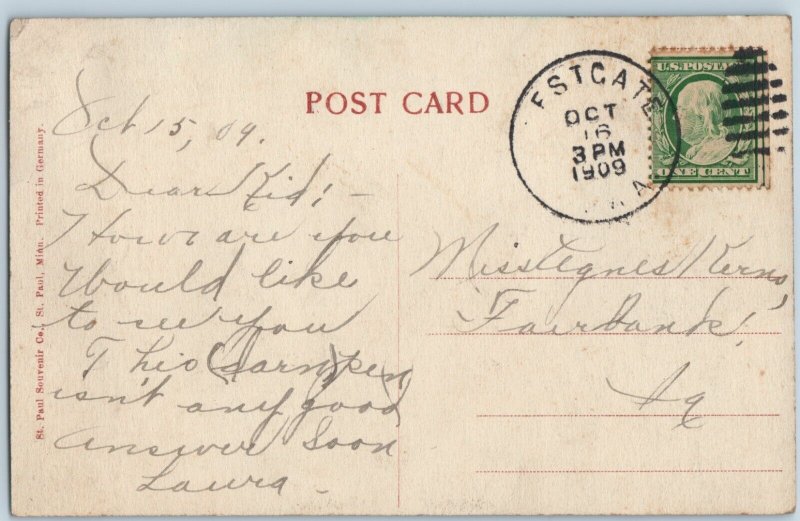 POST CARD
ESTGATE
OCT
16
3 PM
1909
U.S. POSTA
ONE CENT
St. Paul Souvenir Co., St. Paul, Minn. Printed in Germany.
Oct 15, 09.
Dear Kid; -
How are you
Would like
to see you
This (darn) pen
isn't any good
Answer Soon
Laura -
Miss Agnes Kerns,
Fairbank,
Ia